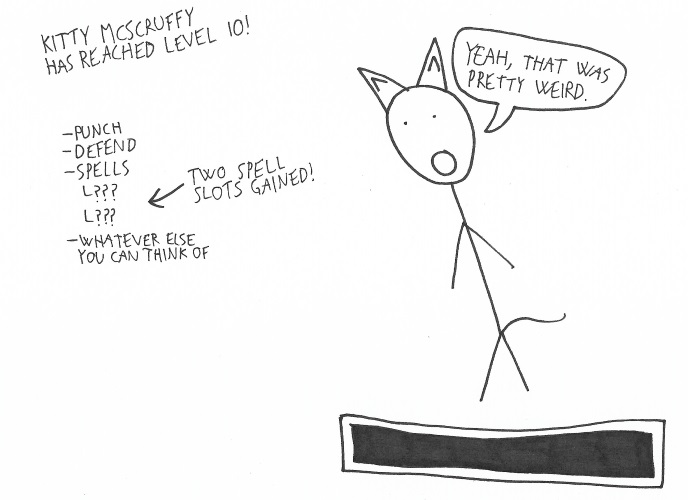 KITTY MCSCRUFFY
HAS REACHED LEVEL 10!
YEAH, THAT WAS
PRETTY WEIRD.
-PUNCH
-DEFEND
-SPELLS
L???
L???
-WHATEVER ELSE
YOU CAN THINK OF
TWO SPELL
SLOTS GAINED!